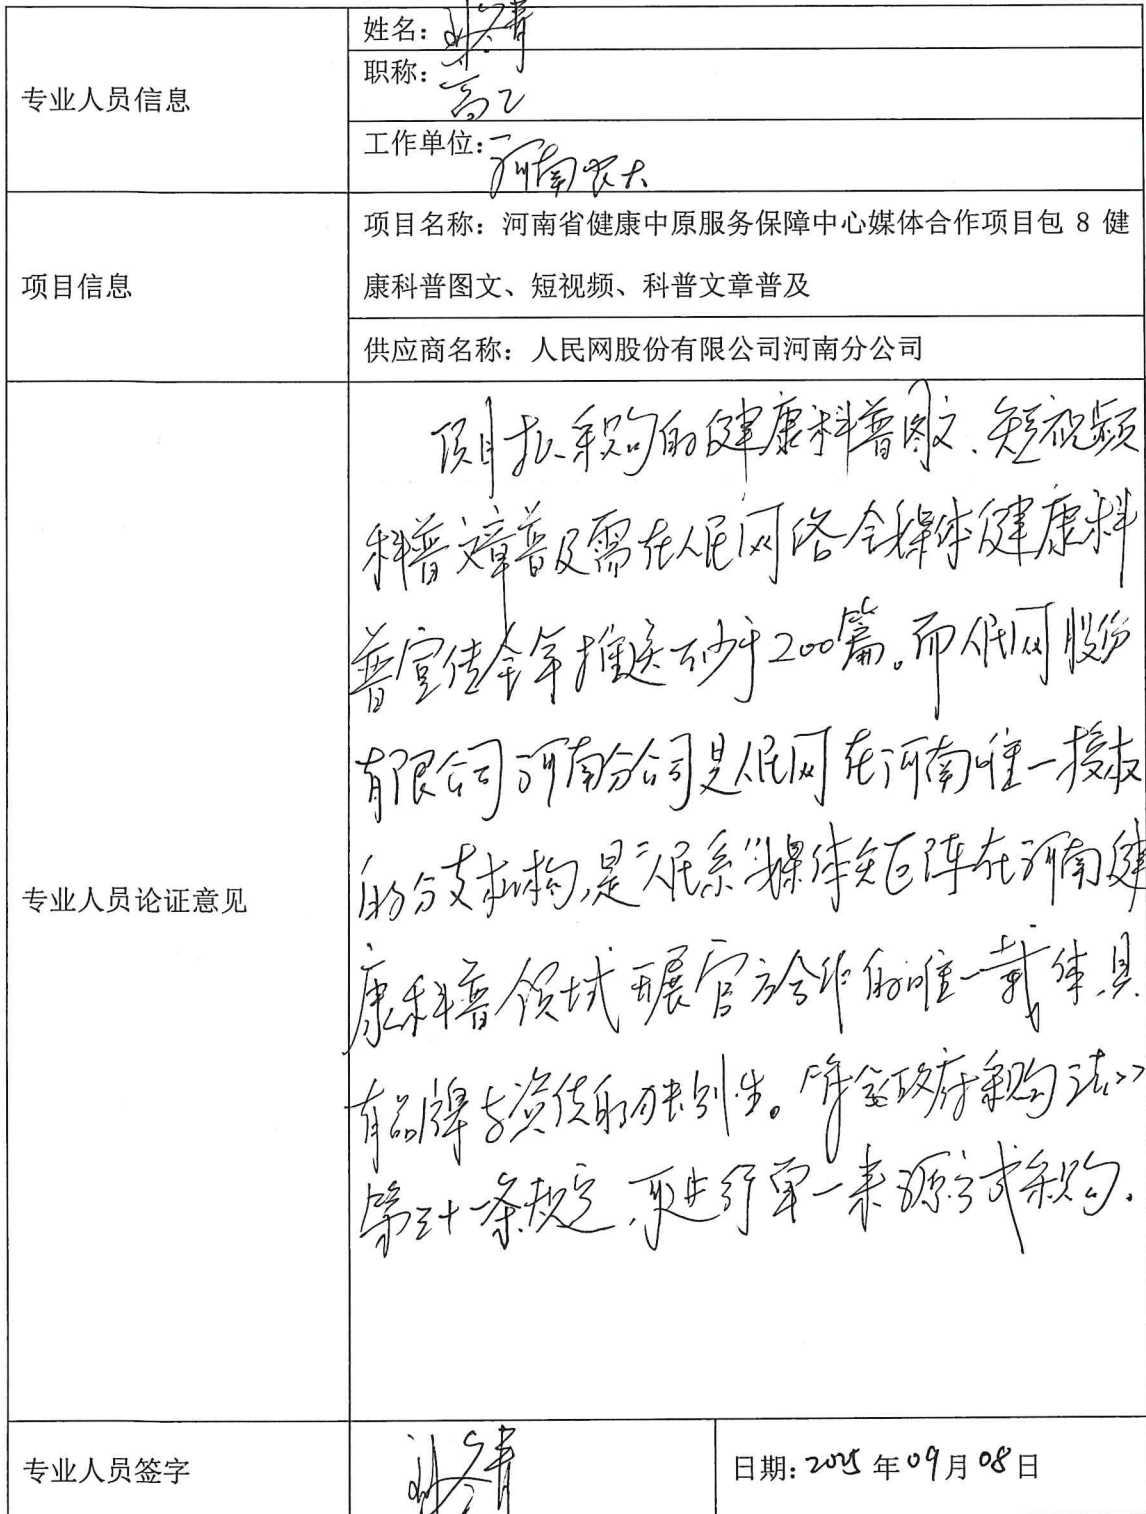 专业人员信息
姓名：
职称：高工
工作单位：河南农大
项目信息
项目名称：河南省健康中原服务保障中心媒体合作项目包 8 健
康科普图文、短视频、科普文章普及
供应商名称：人民网股份有限公司河南分公司
专业人员论证意见
项目拟采购的健康科普图文、短视频
科普文章普及需在人民网络全媒体健康科
普宣传全年推送不少于200篇。而人民网股份
有限公司河南分公司是人民网在河南唯一授权
的分支机构,是“人民系”媒体矩阵在河南健
康科普领域开展官方合作的唯一载体,具
有品牌与资质的特别性。符合政府采购法》
第三十一条规定,可进行单一来源方式采购.
专业人员签字
日期: 2025 年 09 月 08 日